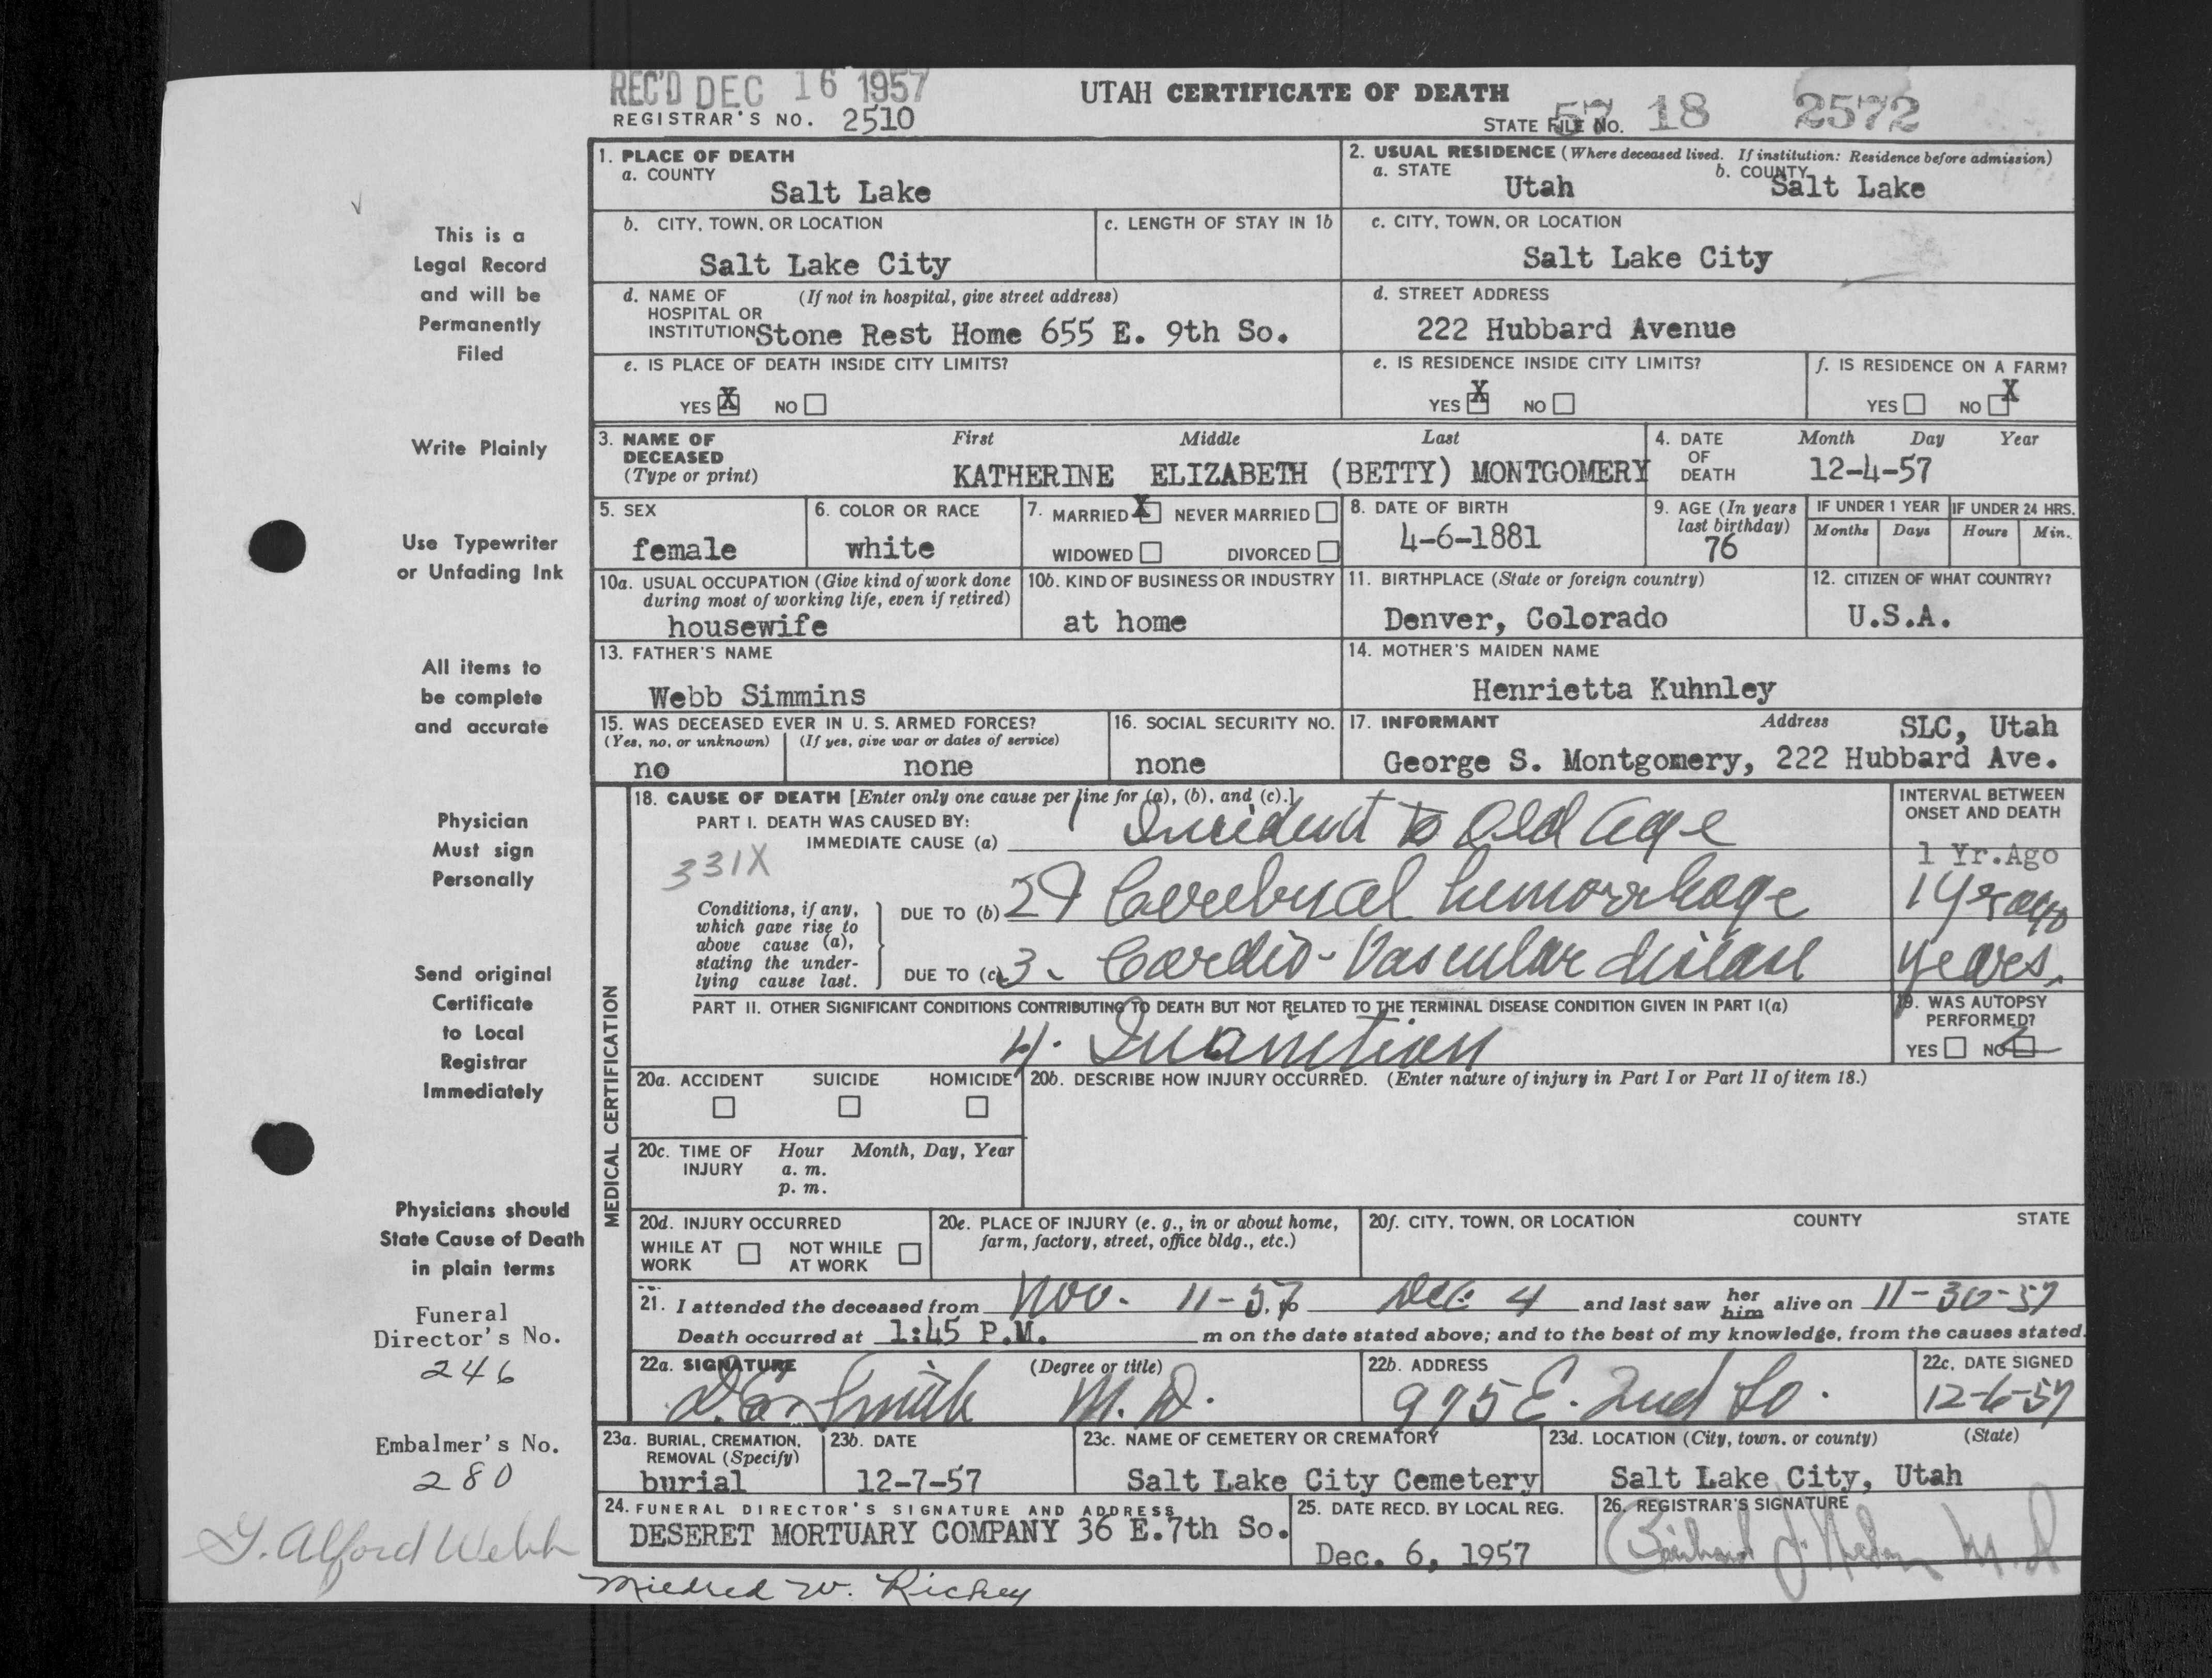 REC'D DEC 16 1957
UTAH CERTIFICATE OF DEATH
REGISTRAR'S NO. 2510
STATE FILE NO. 57 18 2572
This is a
Legal Record
and will be
Permanently
Filed
Write Plainly
Use Typewriter
or Unfading Ink
All items to
be complete
and accurate
Physician
Must sign
Personally
Send original
Certificate
to Local
Registrar
Immediately
Physicians should
State Cause of Death
in plain terms
Funeral
Director's No.
246
Embalmer's No.
280
J. Alford Webb
1. PLACE OF DEATH
a. COUNTY
Salt Lake
2. USUAL RESIDENCE (Where deceased lived. If institution: Residence before admission)
a. STATE Utah b. COUNTY Salt Lake
b. CITY, TOWN, OR LOCATION
Salt Lake City
c. LENGTH OF STAY IN 1b
c. CITY, TOWN, OR LOCATION
Salt Lake City
d. NAME OF (If not in hospital, give street address)
HOSPITAL OR
INSTITUTION Stone Rest Home 655 E. 9th So.
d. STREET ADDRESS
222 Hubbard Avenue
e. IS PLACE OF DEATH INSIDE CITY LIMITS?
YES X NO
e. IS RESIDENCE INSIDE CITY LIMITS?
YES X NO
f. IS RESIDENCE ON A FARM?
YES NO X
3. NAME OF
DECEASED
(Type or print)
First Middle Last
KATHERINE ELIZABETH (BETTY) MONTGOMERY
4. DATE
OF
DEATH
Month Day Year
12-4-57
5. SEX
female
6. COLOR OR RACE
white
7. MARRIED X NEVER MARRIED
WIDOWED DIVORCED
8. DATE OF BIRTH
4-6-1881
9. AGE (In years
last birthday)
76
IF UNDER 1 YEAR
Months Days
IF UNDER 24 HRS.
Hours Min.
10a. USUAL OCCUPATION (Give kind of work done
during most of working life, even if retired)
housewife
10b. KIND OF BUSINESS OR INDUSTRY
at home
11. BIRTHPLACE (State or foreign country)
Denver, Colorado
12. CITIZEN OF WHAT COUNTRY?
U.S.A.
13. FATHER'S NAME
Webb Simmins
14. MOTHER'S MAIDEN NAME
Henrietta Kuhnley
15. WAS DECEASED EVER IN U. S. ARMED FORCES?
(Yes, no, or unknown) (If yes, give war or dates of service)
no none
16. SOCIAL SECURITY NO.
none
17. INFORMANT Address SLC, Utah
George S. Montgomery, 222 Hubbard Ave.
MEDICAL CERTIFICATION
18. CAUSE OF DEATH [Enter only one cause per line for (a), (b), and (c).]
PART I. DEATH WAS CAUSED BY:
IMMEDIATE CAUSE (a) Incident to Old age
331X
Conditions, if any,
which gave rise to
above cause (a),
stating the under-
lying cause last.
DUE TO (b) 2 Cerebral hemorrhage
DUE TO (c) 3. Cardio-Vascular disease
INTERVAL BETWEEN
ONSET AND DEATH
1 Yr.Ago
1 yr ago
years.
PART II. OTHER SIGNIFICANT CONDITIONS CONTRIBUTING TO DEATH BUT NOT RELATED TO THE TERMINAL DISEASE CONDITION GIVEN IN PART I(a)
4. Inanition
19. WAS AUTOPSY
PERFORMED?
YES NO
20a. ACCIDENT SUICIDE HOMICIDE
20b. DESCRIBE HOW INJURY OCCURRED. (Enter nature of injury in Part I or Part II of item 18.)
20c. TIME OF Hour Month, Day, Year
INJURY a. m.
p. m.
20d. INJURY OCCURRED
WHILE AT WORK NOT WHILE AT WORK
20e. PLACE OF INJURY (e. g., in or about home,
farm, factory, street, office bldg., etc.)
20f. CITY, TOWN, OR LOCATION COUNTY STATE
21. I attended the deceased from Nov. 11-57, to Dec. 4 and last saw her him alive on 11-30-57
Death occurred at 1:45 P.M. m on the date stated above; and to the best of my knowledge, from the causes stated.
22a. SIGNATURE (Degree or title)
Smith M. D.
22b. ADDRESS
995 E. 2nd So.
22c. DATE SIGNED
12-6-57
23a. BURIAL, CREMATION,
REMOVAL (Specify)
burial
23b. DATE
12-7-57
23c. NAME OF CEMETERY OR CREMATORY
Salt Lake City Cemetery
23d. LOCATION (City, town, or county) (State)
Salt Lake City, Utah
24. FUNERAL DIRECTOR'S SIGNATURE AND ADDRESS
DESERET MORTUARY COMPANY 36 E.7th So.
25. DATE RECD. BY LOCAL REG.
Dec. 6, 1957
26. REGISTRAR'S SIGNATURE
M. D
Mildred W. Richey